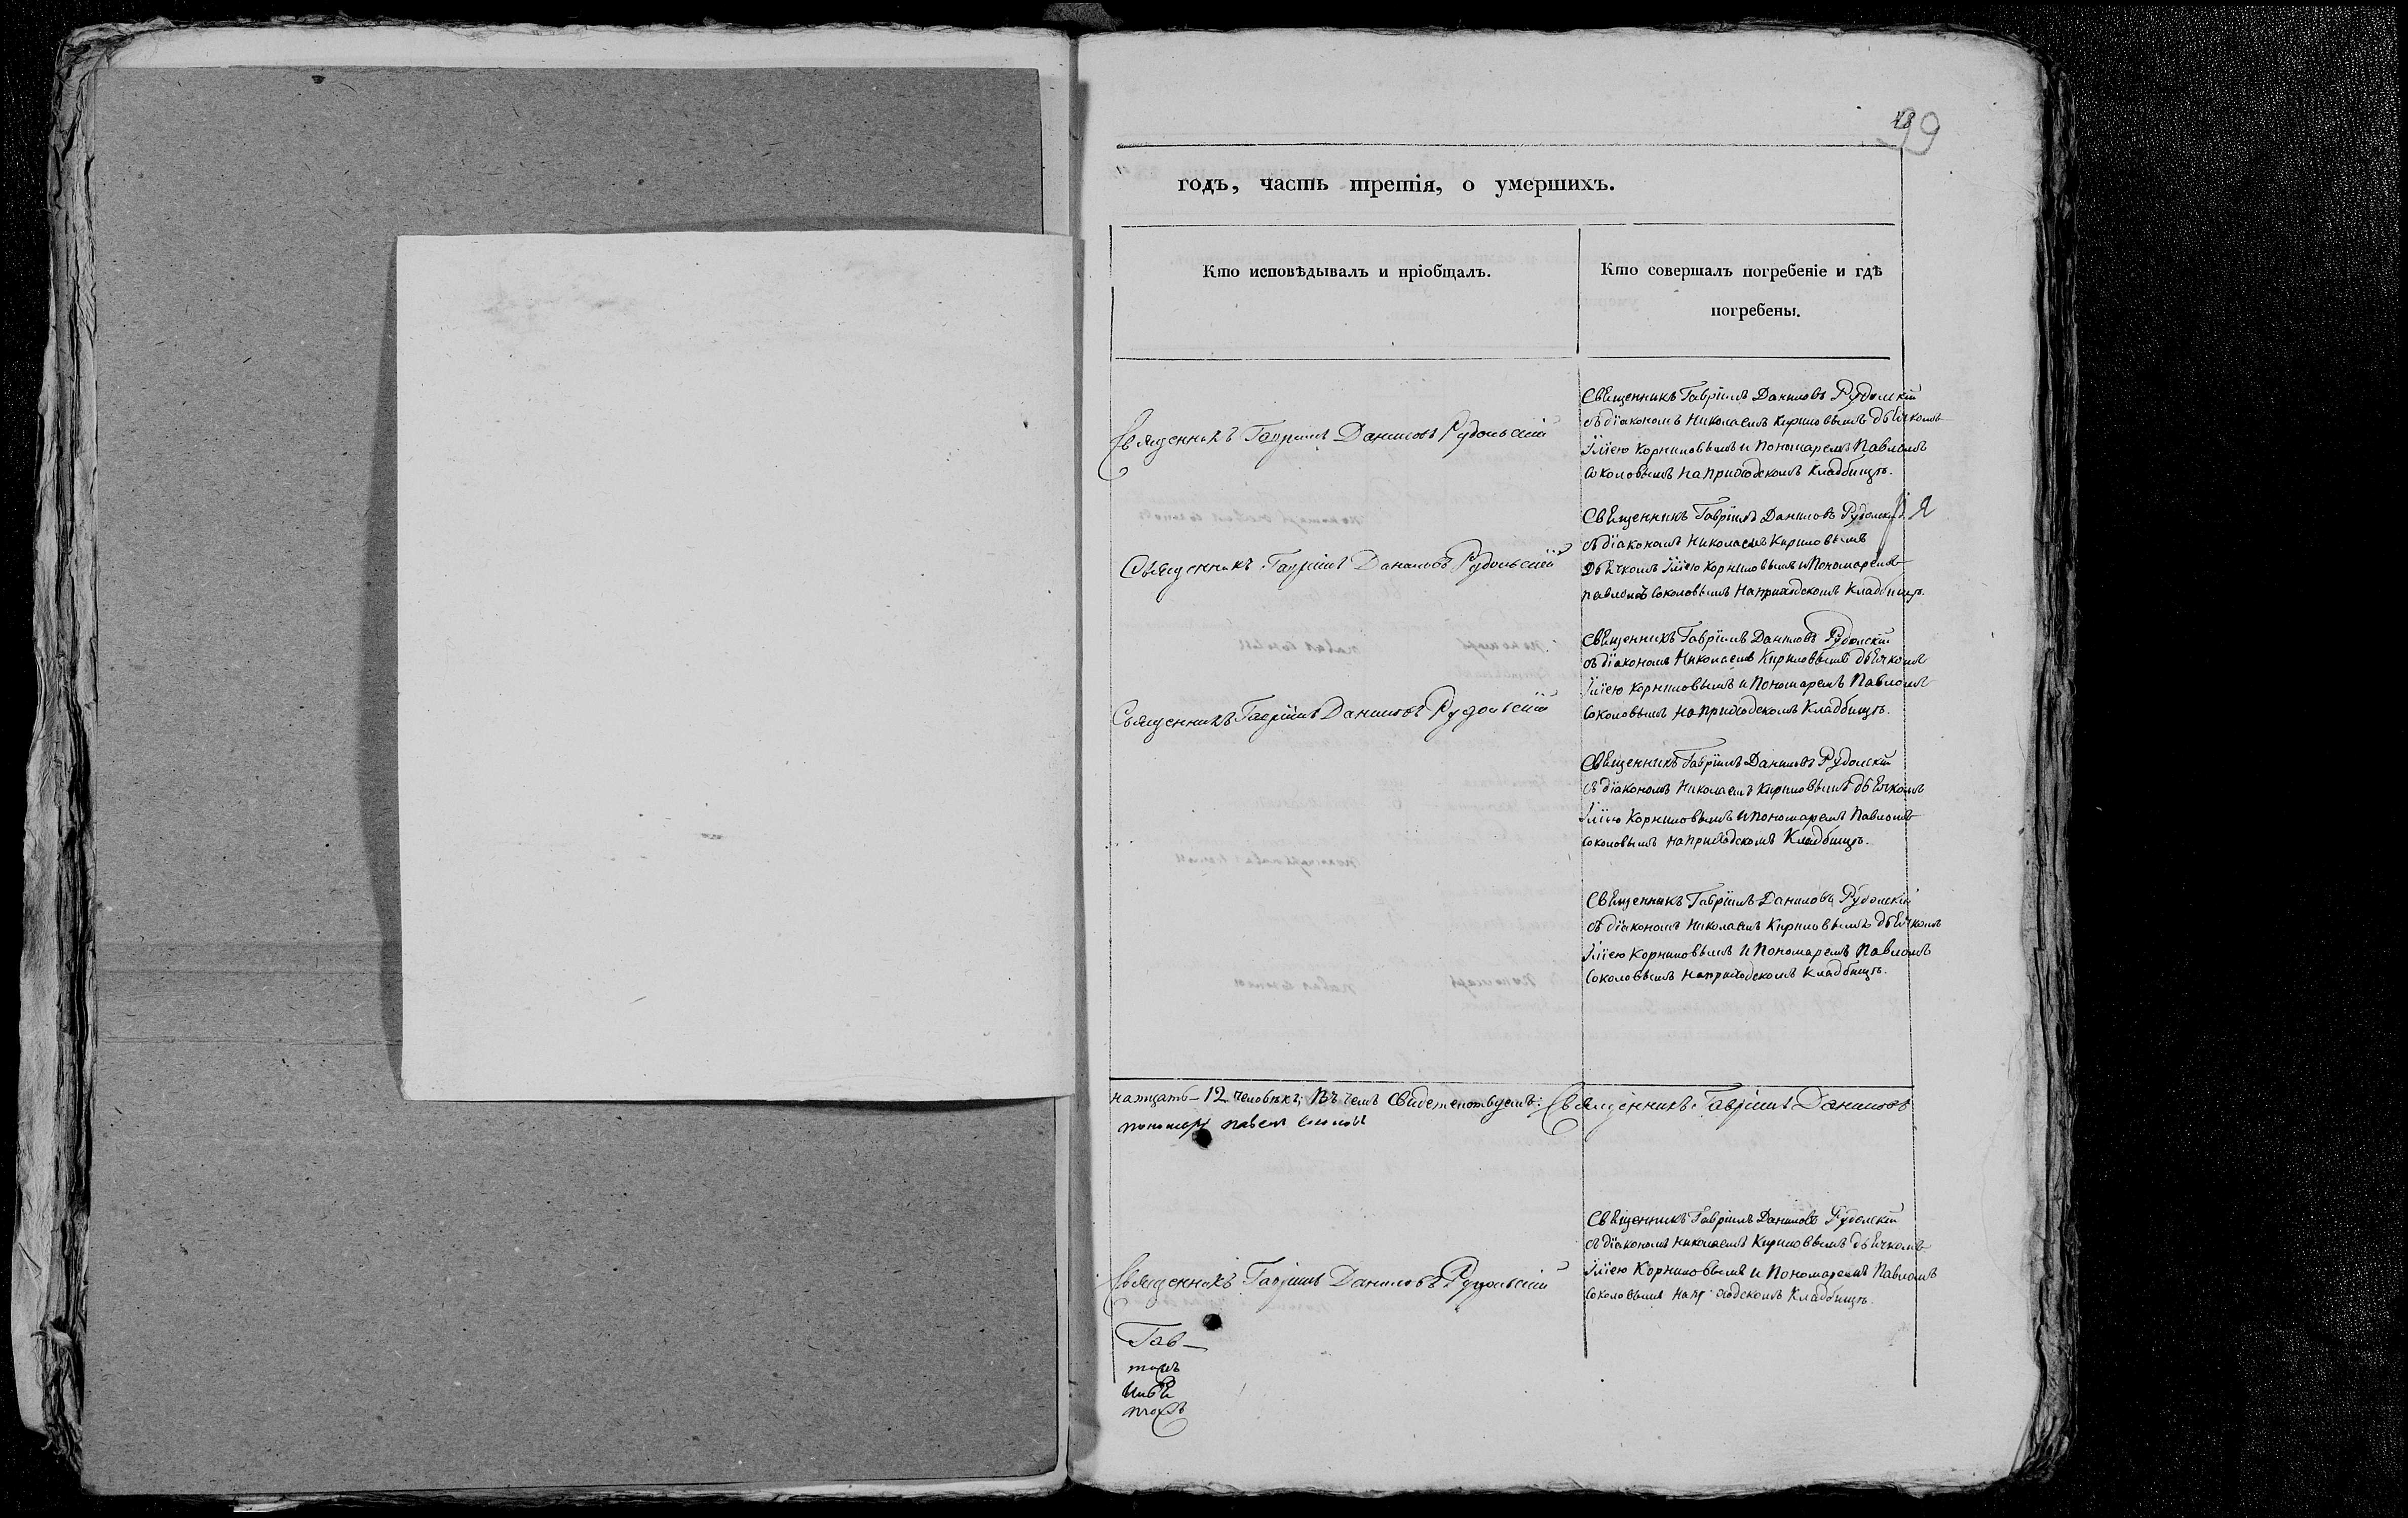 99
годъ, часть третія, о умершихъ.
Кто исповѣдывалъ и пріобщалъ.
Кто совершалъ погребеніе и гдѣ
погребены.
Священникъ Гавріилъ Даниловъ Рудольскій
Священникъ Гавріилъ Даниловъ Рудолскій
съ діакономъ Николаемъ Кириловымъ дьячкомъ
Іліею Корниловымъ и Пономаремъ Павломъ
Соколовымъ на приходскомъ кладбищѣ.
Священникъ Гавріилъ Даниловъ Рудольскій
Священникъ Гавріилъ Даниловъ Рудолскій
съ діакономъ Николаемъ Кириловымъ
дьячкомъ Іліею Корниловымъ и Пономаремъ
Павломъ Соколовымъ на приходскомъ Кладбищѣ.
Священникъ Гавріилъ Даниловъ Рудольскій
Священникъ Гавріилъ Даниловъ Рудолскій
съ діакономъ Николаемъ Кириловымъ дьячкомъ
Іліею Корниловымъ и Пономаремъ Павломъ
Соколовымъ на приходскомъ Кладбищѣ.
Священникъ Гавріилъ Даниловъ Рудолскій
съ діакономъ Николаемъ Кириловымъ дьячкомъ
Іліею Корниловымъ и пономаремъ Павломъ
Соколовымъ на приходскомъ Кладбищѣ.
Священникъ Гавріилъ Даниловъ Рудолскій
съ діакономъ Николаемъ Кириловымъ дьячкомъ
Іліею Корниловымъ и Пономаремъ Павломъ
Соколовымъ на приходскомъ кладбищѣ.
натцать – 12 человѣкъ; Въ чемъ Свидетелствуемъ: Священникъ Гавріилъ Даниловъ
пономарь павелъ Соколовъ
Священникъ Гавріилъ Даниловъ Рудольскій
Священникъ Гавріилъ Даниловъ Рудолскій
съ діакономъ Николаемъ Кириловымъ дьячкомъ
Іліею Корниловымъ и Пономаремъ Павломъ
Соколовымъ на приходскомъ Кладбищѣ.
Гав–